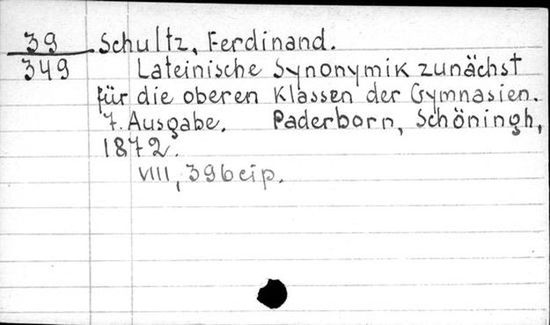 39 Schultz, Ferdinand.
349 Lateinische Synonymik zunächst
für die oberen Klassen der Gymnasien.
7. Ausgabe. Paderborn, Schöningh,
1872.
VIII, 396 c.ip.